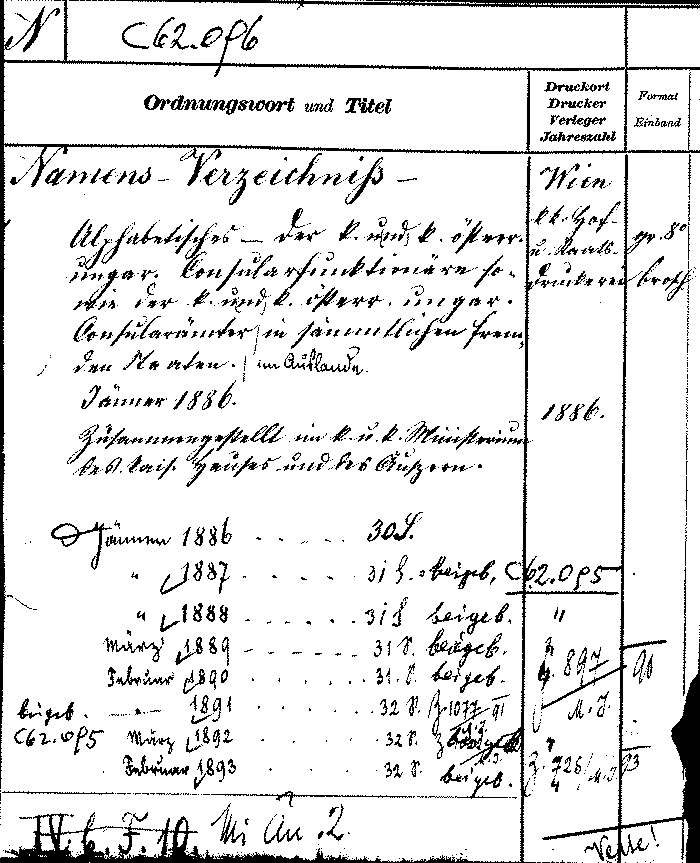 N C62.096
Ordnungswort und Titel
Druckort
Drucker
Verleger
Jahreszahl
Format
Einband
Namens-Verzeichniß —
Alphabetisches — der k. und k. österr.
ungar. Consularfunktionäre so-
wie der k. und k. österr. ungar.
Consularämter in sämmtlichen frem-
den Staaten. im Auslande.
Jänner 1886.
Zusammengestellt im k. u. k. Ministerium
des kais. Hauses und des Äußern.
Wien
k.k. Hof-
u. Staats-
druckerei
gr. 8°
brosch
1886.
Jänner 1886 . . . . . 30 S.
" 1887 . . . . . 31 S. beigeb. C62.095
" 1888 . . . . . 31 S. beigeb. "
März 1889 . . . . . 31 S. beigeb.
Februar 1890 . . . . . 31 S. beigeb. 897 90
beigeb. — 1891 . . . . . 32 S. Z. 1077 91 M. J.
C62.095 März 1892 . . . . . 32 S.
Februar 1893 . . . . . 32 S. beigeb. Z. 728 93
IV. b. F. 10. Mi An. 2